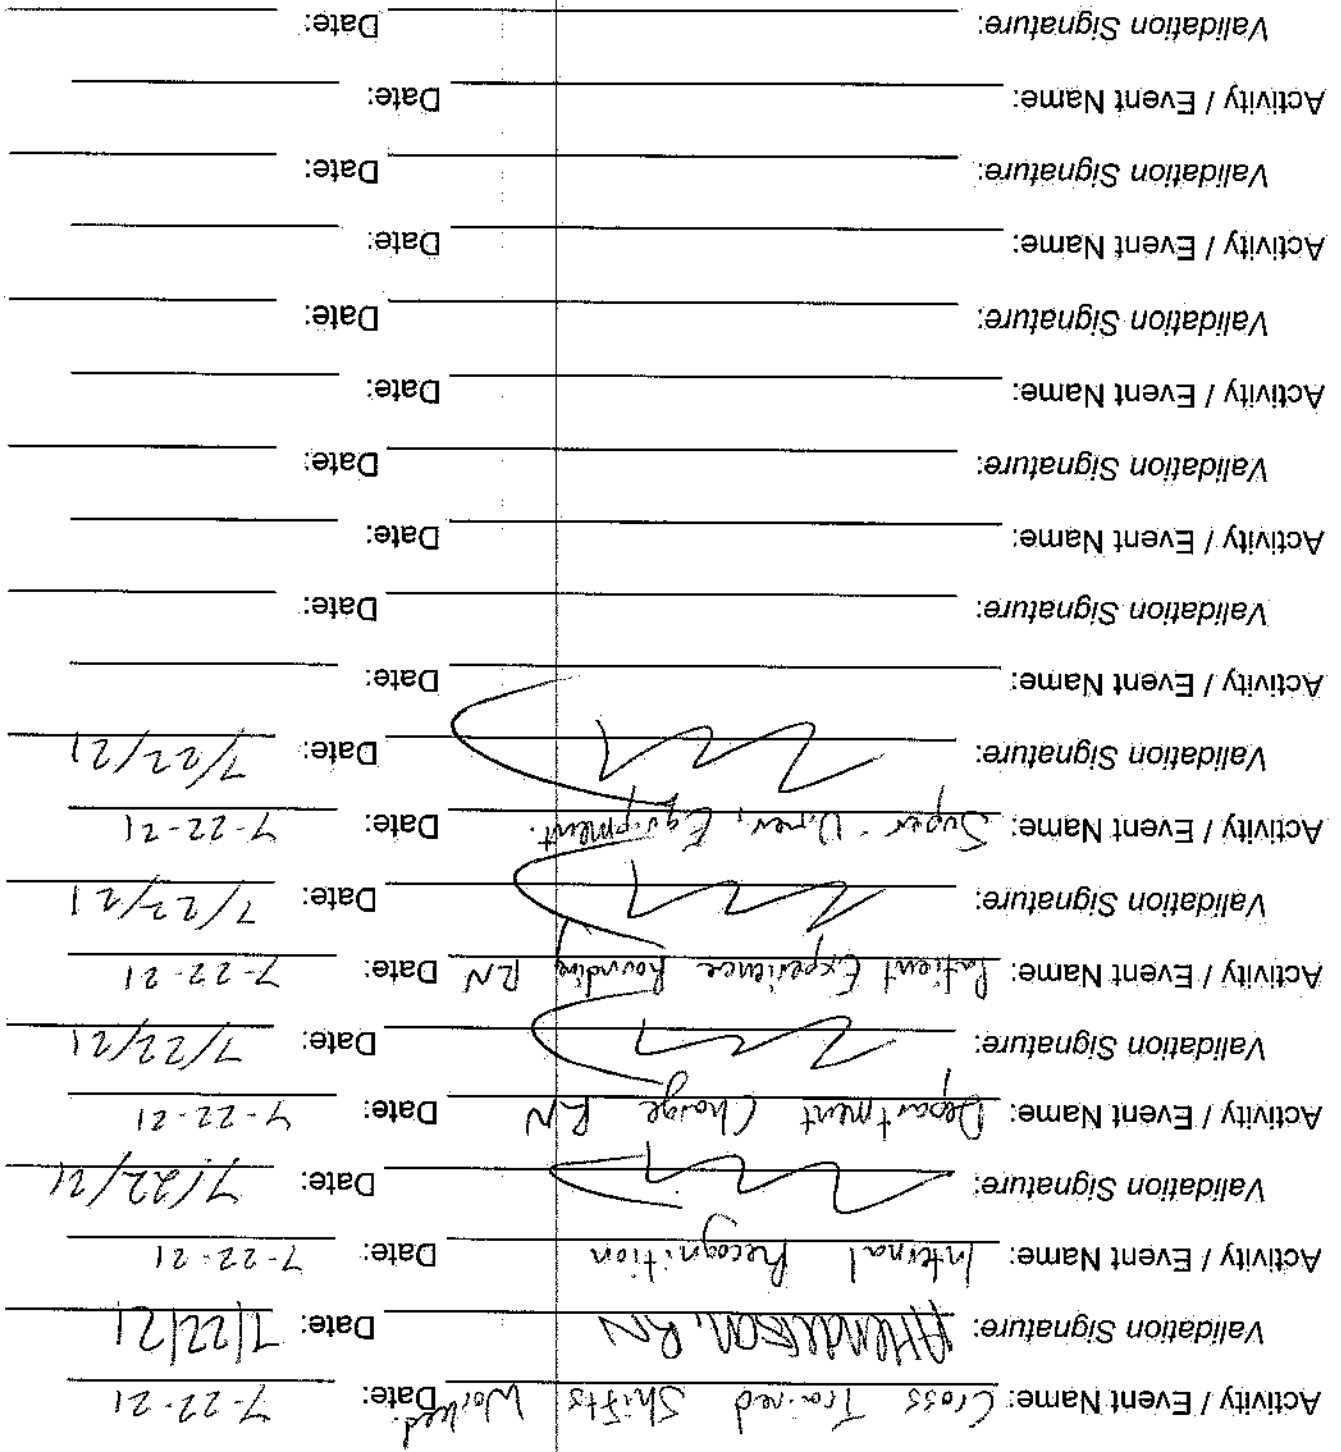 Activity / Event Name: Cross Trained Shifts Worked Date: 7-22-21
Validation Signature: AHenderson, RN Date: 7/22/21
Activity / Event Name: Internal Recognition Date: 7-22-21
Validation Signature: Date: 7/22/21
Activity / Event Name: Department Charge RN Date: 7-22-21
Validation Signature: Date: 7/22/21
Activity / Event Name: Patient Experience Rounding RN Date: 7-22-21
Validation Signature: Date: 7/22/21
Activity / Event Name: Super-User, Equipment. Date: 7-22-21
Validation Signature: Date: 7/22/21
Activity / Event Name: Date:
Validation Signature: Date:
Activity / Event Name: Date:
Validation Signature: Date:
Activity / Event Name: Date:
Validation Signature: Date:
Activity / Event Name: Date:
Validation Signature: Date:
Activity / Event Name: Date:
Validation Signature: Date: